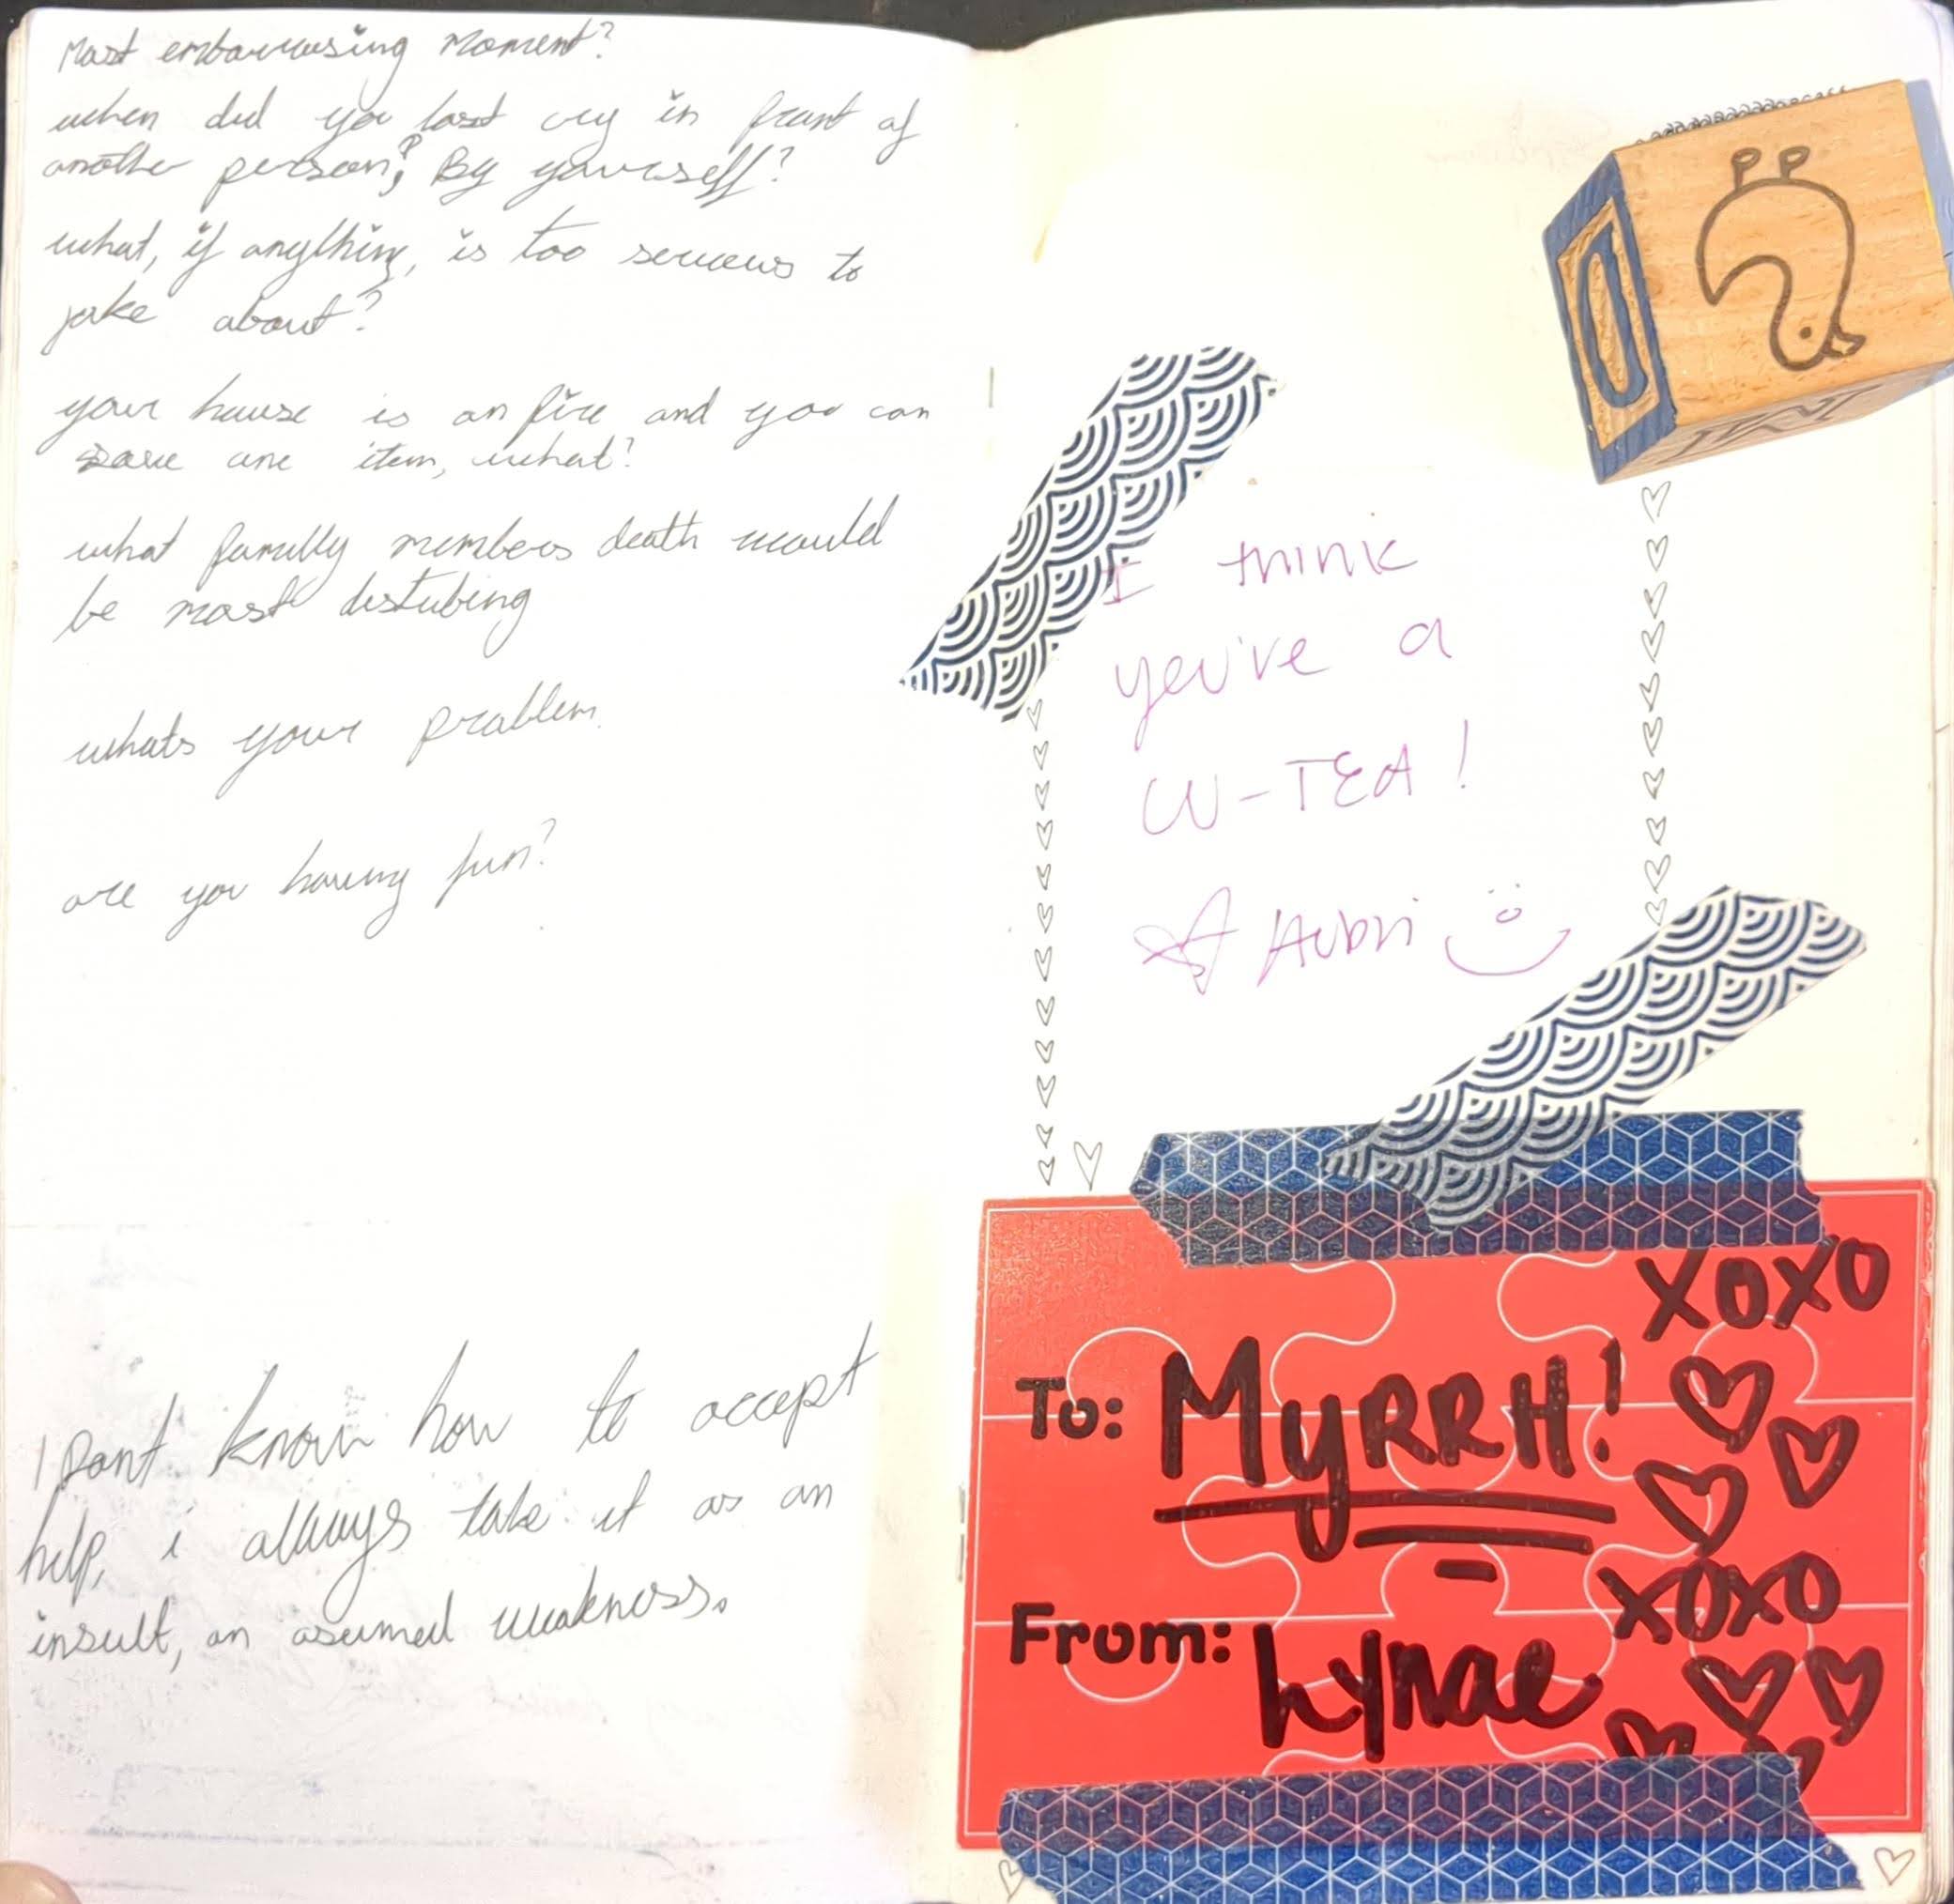 Most embarrassing Moment?
when did you last cry in front of
another person? By yourself?
what, if anything, is too serious to
joke about?
your house is on fire and you can
save one item, what?
what familly members death would
be most distubing
whats your problem
are you having fun?
I Dont know how to accept
help, i always take it as an
insult, an asumed weakness.
I think
you've a
W-TEA!
Aubri
XOXO
To: MyRRH!
XOXO
From: Lynae